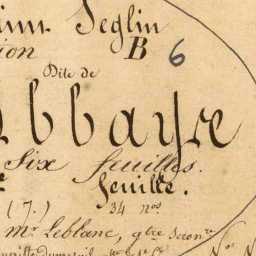 Seglin
ion B 6
Dite de
bbaye
Six feuilles.
feuille.
(7.) 34 nos
Mr. Leblanc, gtre
Nos